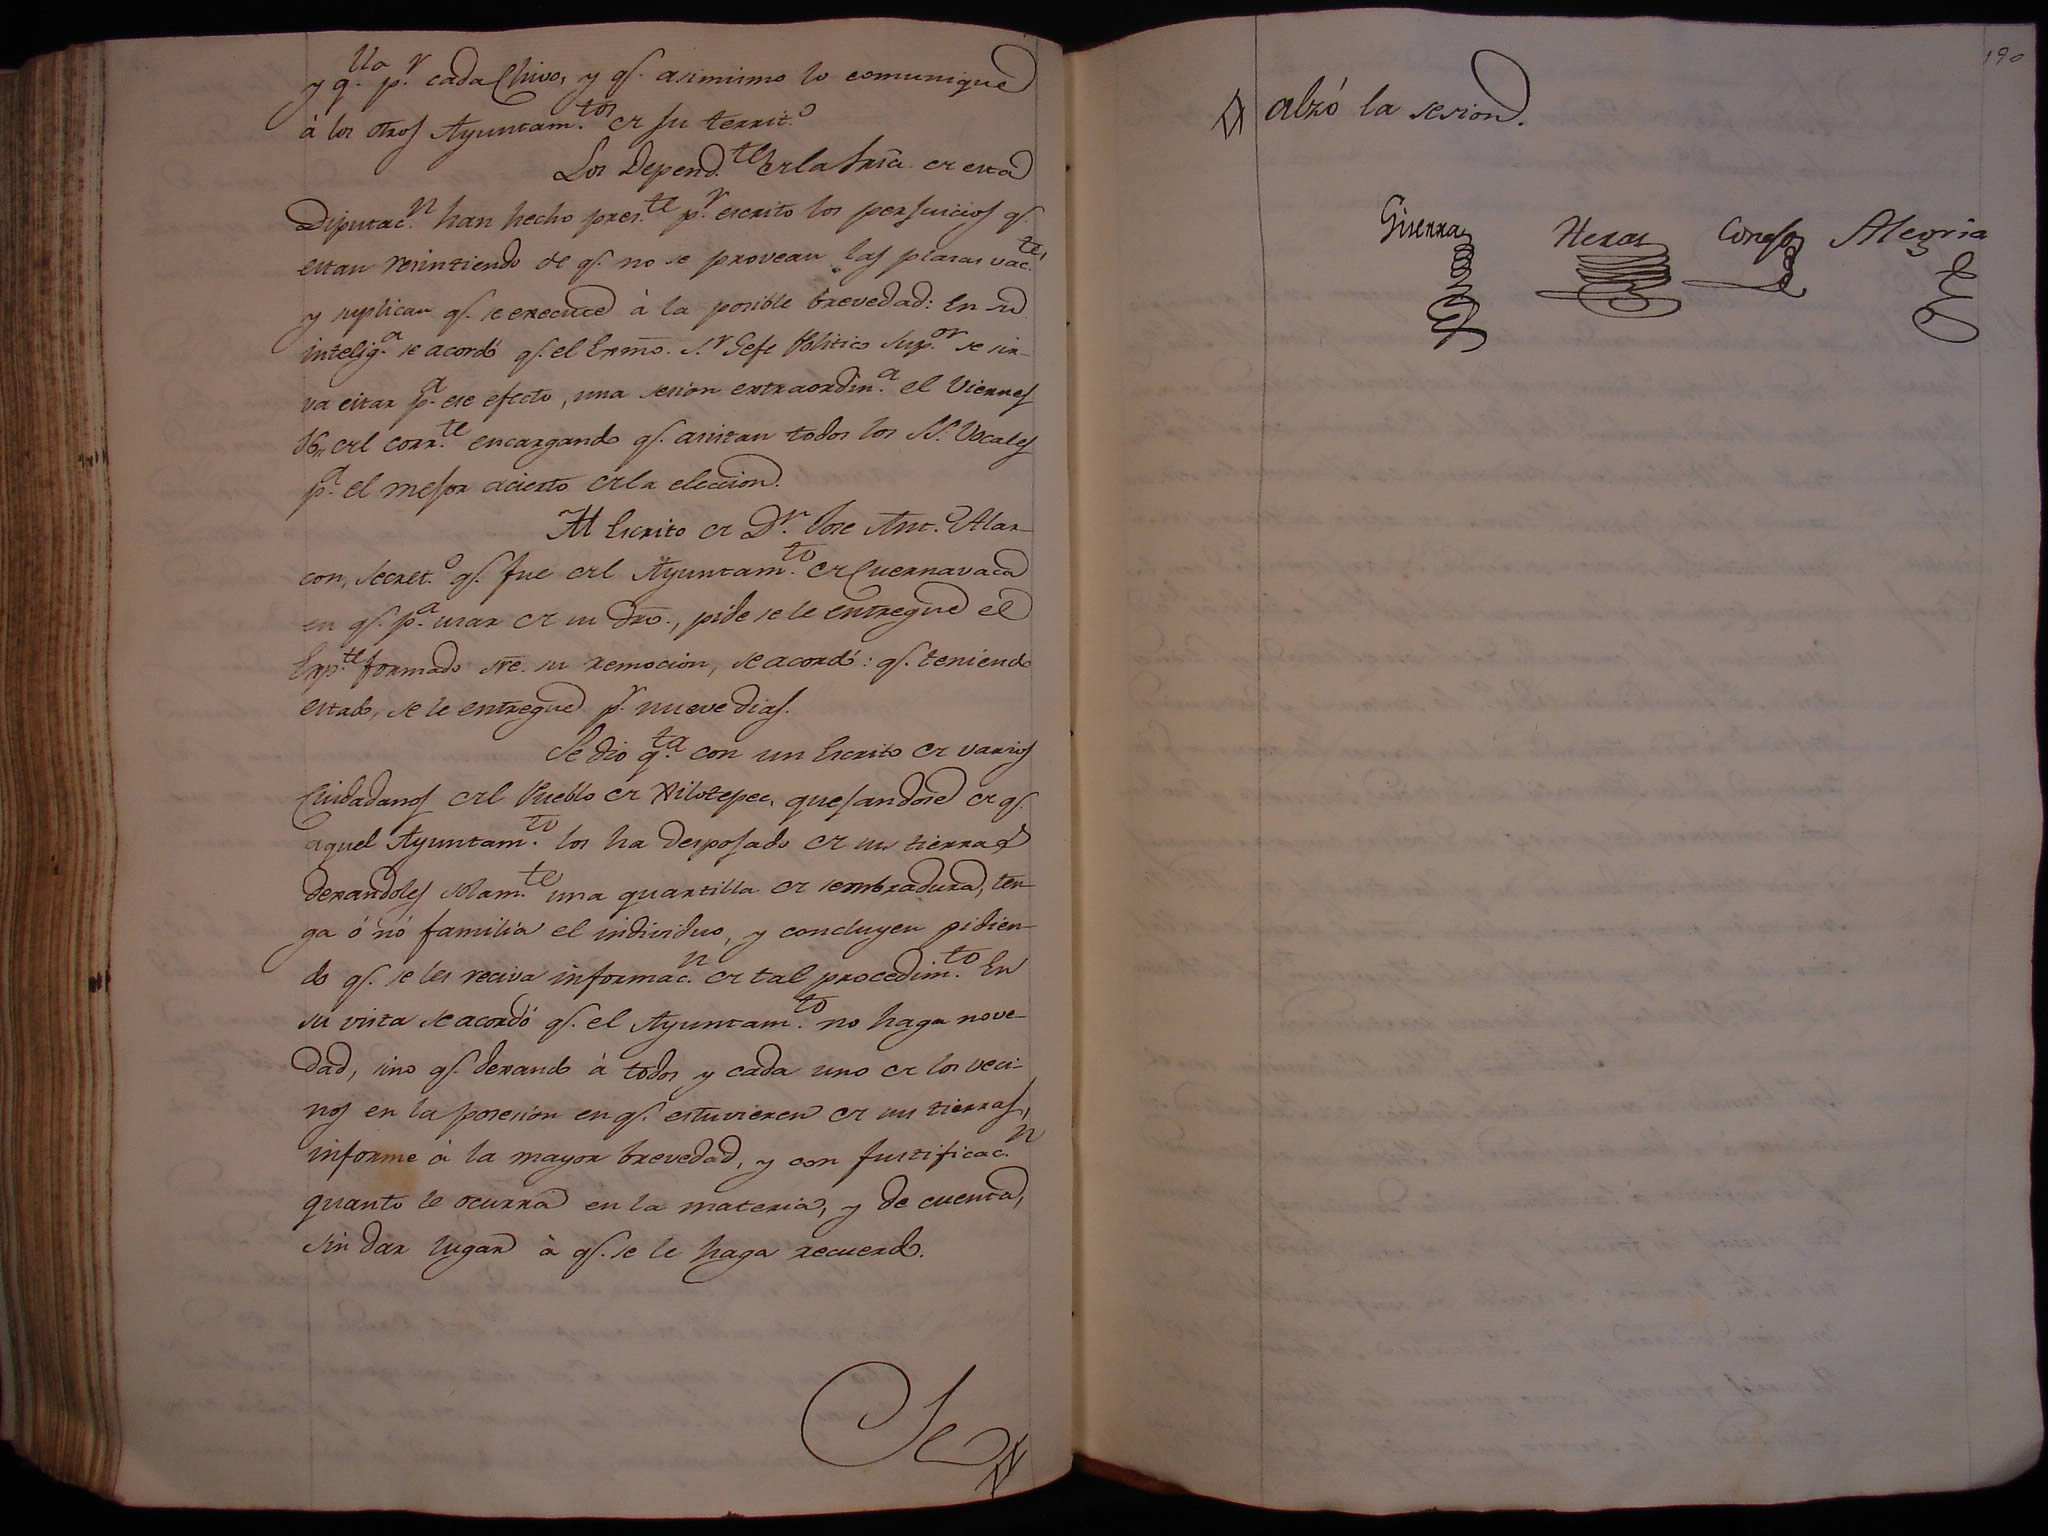 y q.lla p.r cada Chivo, y q.e asimismo lo comunique
à los otros Ayuntam.tos de su territ.o
Los Depend.tes de la Sria. de esta
Diputac.n han hecho pres.te p.r escrito los perjuicios q.e
estan resintiendo de q.e no se provean las plasas vac.tes
y suplican q.e se execute à la posible brevedad: En su
intelig.a se acordó q.e el Exmo. S.r Gefe Politico Sup.or se sir-
va citar p.a ese efecto, una sesion extraordin.a el Viernes
16,, del corr.te encargando q.e asistan todos los S.S. Vocales
p.a el mejor acierto de la eleccion.
Al Escrito de D.n Jose Ant.o Alar-
con, Secret.o q.e fue del Ayuntam.to de Cuernavaca
en q.e p.a usar de su dro., pide se le entregue el
Exp.te formado sre. su remocion, se acordó: q.e teniendo
estado, se le entregue p.r nueve dias.
Se dio q.ta con un Escrito de varios
Ciudadanos del Pueblo de Xilotepec, quejandose de q.e
aquel Ayuntam.to los ha despojado de sus tierras
dexandoles solam.te una quartilla de sembradura, ten-
ga ó nó familia el individuo, y concluyen pidien-
do q.e se les reciva informac.n de tal procedim.to En
su vista se acordó q.e el Ayuntam.to no haga nove-
dad, sino q.e dexando à todos y cada uno de los veci-
nos en la posesion en q.e estuvieren de sus tierras,
informe à la mayor brevedad, y con justificac.n
quanto le ocurra en la materia, y de cuenta,
sin dar lugar à q.e se le haga recuerdo.
Se
190
alzó la sesion.
Guerra Heras Conejo Alegria